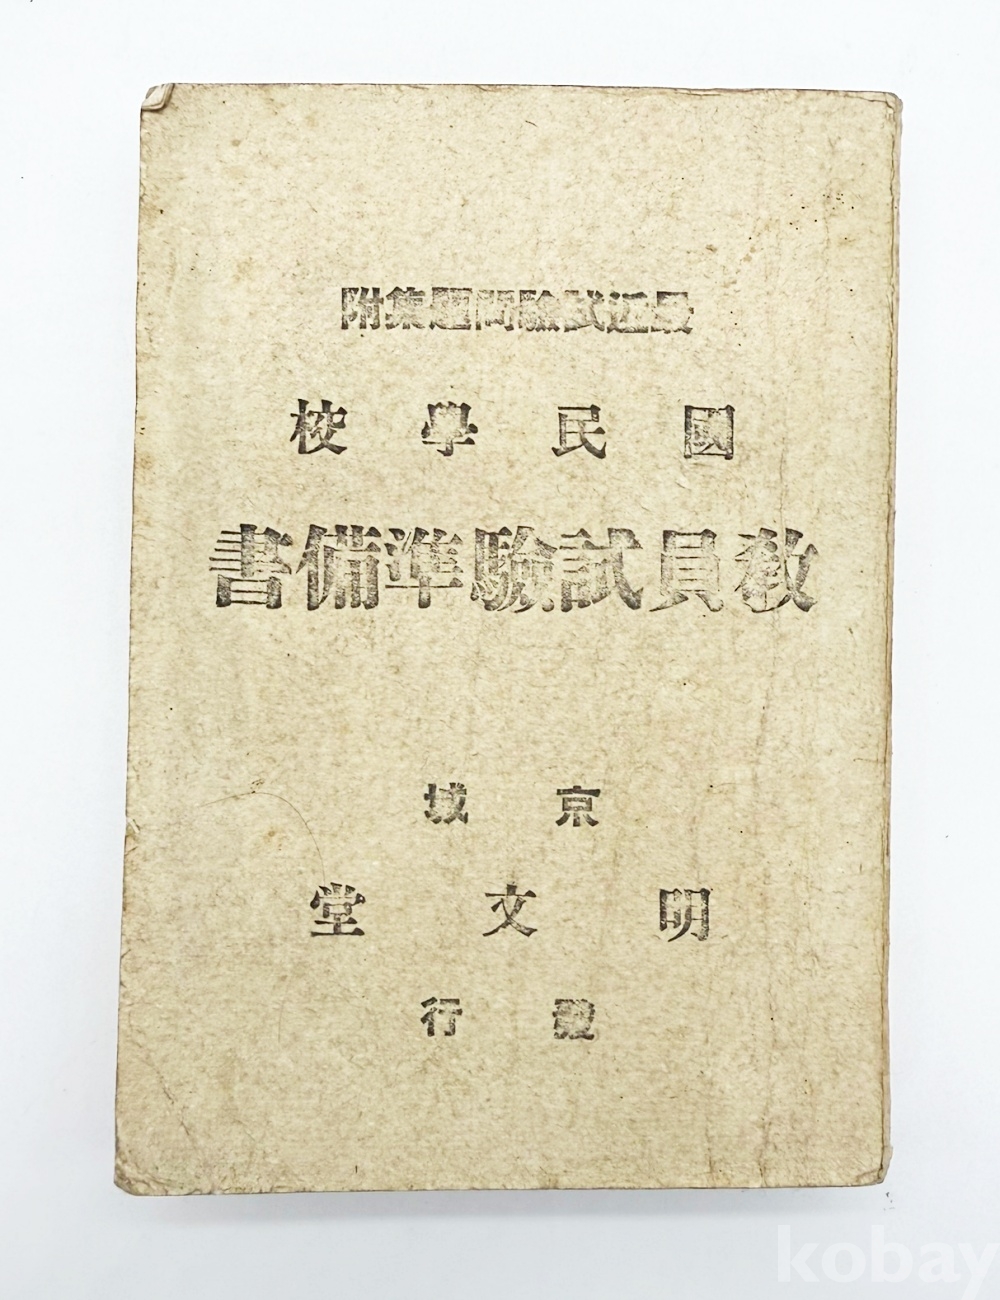 最近試驗問題集附
國民學校
敎員試驗準備書
京城
明文堂
發行
kobay